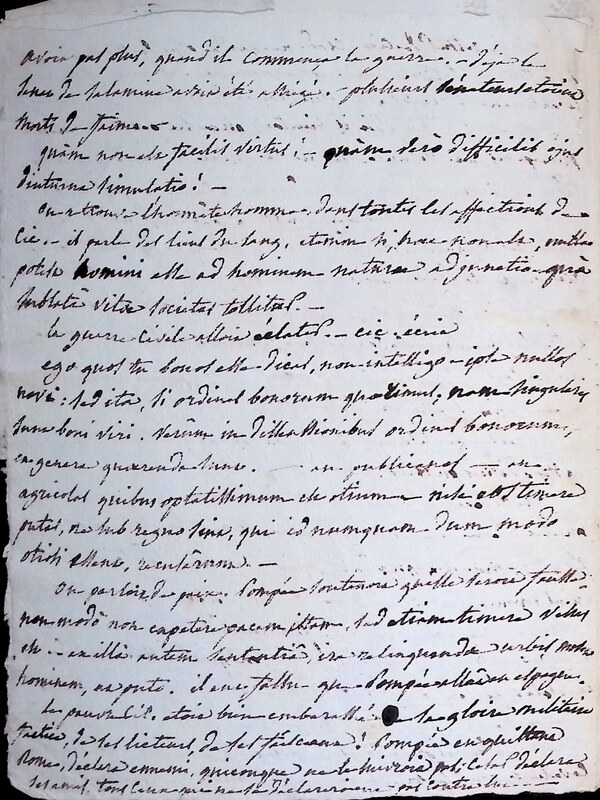 avoir pas plus, quand il commença la guerre. – déja le
senat de Salamine avoit été assiégé. – plusieurs sénateurs etoient
morts de faim. –
quàm non est facilis virtus! – quàm verò difficilis ejus
diuturna simulatio! –
on retrouve l'honnête homme dans toutes les affections de
Cic. – il parle des liens du sang, etenim si, haec non est, nulla
potest homini esse ad hominem naturae adjunctio quâ
sublatâ vitae societas tollitur. –
la guerre civile alloit éclater. – cic. écrit
ego quos tu bonos esse dicas, non intelligo – ipse nullos
novi: sed ita, si ordines bonorum quaerimus, nam singulares
sunt boni viri. verùm in dissensionibus ordines bonorum,
et genera quaerenda sunt. – an publicanos – an
agricolas quibus optatissimum est otium – nisi eos timere
putas, ne sub regno sint, qui id numquam dum modo
otiosi essent, recusarunt. –
on parloit de paix. Pompée soutenoit qu'elle seroit fausse
non modò non expetere pacem istam, sed etiam timere visus
est – ex illâ autem sententiâ, relinquendae urbis movet
hominem, ut puto. il eut fallu que Pompée allât en espagne.
le pauvre Cic. etoit bien embarrassé de sa gloire militaire
de ses licteurs, de ses faisceaux! Pompée en quittant
Rome, déclara ennemi, quiconque ne le suivroit pas. César déclara
ses amis, tous ceux qui ne se déclareroient pas contre lui –